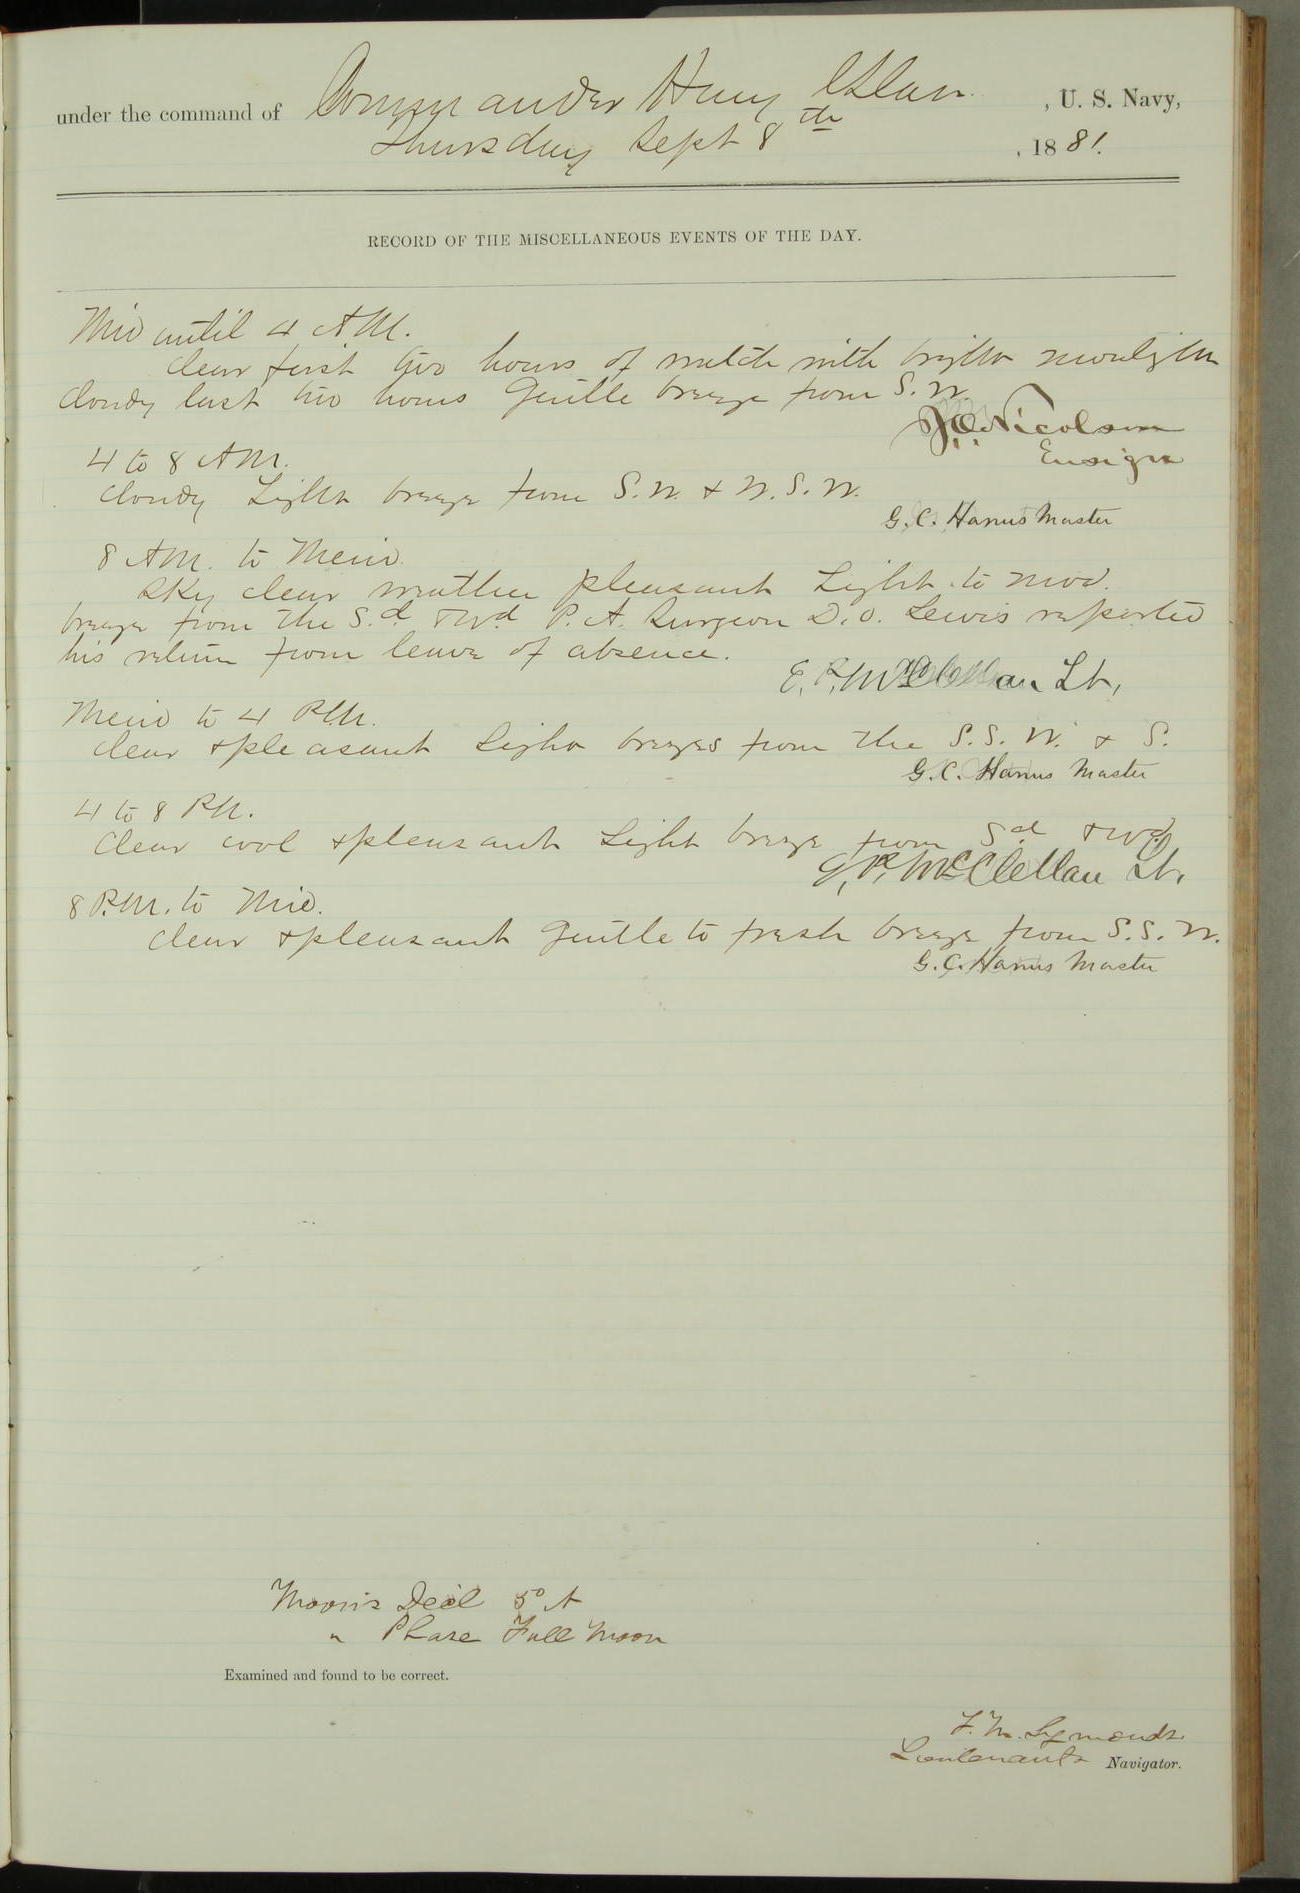 under the command of Commander Henry Glass , U. S. Navy,
Thursday Sept 8th , 1881.
RECORD OF THE MISCELLANEOUS EVENTS OF THE DAY.
Mid until 4 A.M.
Clear first two hours of watch with bright moonlight
cloudy last two hours Gentle breeze from S.W.
Nicolson
Ensign
4 to 8 A.M.
Cloudy Light breeze from S.W. & W.S.W.
G. C. Hanus Master
8 A.M. to Merid.
Sky clear weather pleasant Light to mod.
breeze from the S.d & Wd P. A. Surgeon D. O. Lewis reported
his return from leave of absence.
E. P. McClellan Lt,
Merid to 4 P.M.
Clear & pleasant Light breezes from the S. S. W. & S.
G. C. Hanus Master
4 to 8 P.M.
Clear cool & pleasant Light breeze from Sd & Wd
E. P. McClellan Lt.
8 P.M. to Mid.
Clear & pleasant Gentle to fresh breeze from S. S. W.
G. C. Hanus Master
Moon's Decl 5°
" Phase Full Moon
Examined and found to be correct.
F. M. Symonds
Lieutenant Navigator.